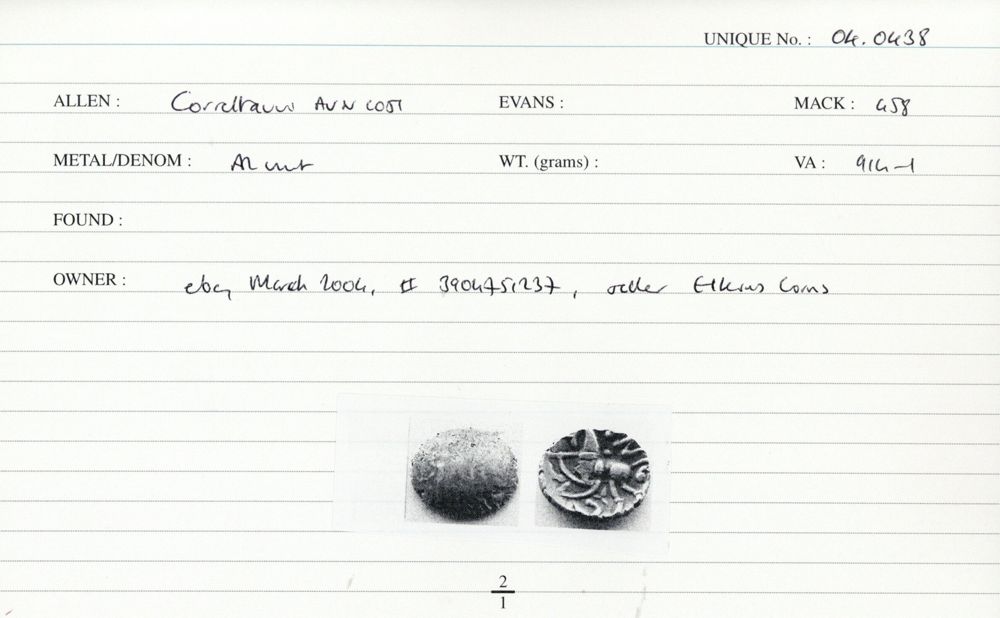 UNIQUE No. : 04.0438
ALLEN : Correltauw AVN COST EVANS : MACK : 458
METAL/DENOM : AR unit WT. (grams) : VA : 914-1
FOUND :
OWNER : ebay March 2004, # 3904751237, seller Elkins Coins
2
1